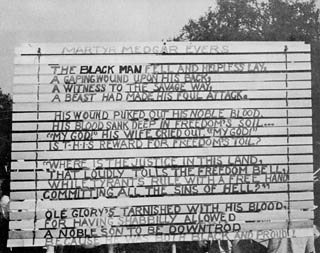 MARTYR MEDGAR EVERS
THE BLACK MAN FELL AND HELPLESS LAY,
A GAPING WOUND UPON HIS BACK,
A WITNESS TO THE SAVAGE WAY,
A BEAST HAD MADE HIS FOUL ATTACK.
HIS WOUND PUKED OUT HIS NOBLE BLOOD.
HIS BLOOD SANK DEEP IN FREEDOM'S SOIL...
"MY GOD!" HIS WIFE CRIED OUT "MY GOD!"
IS T-H-I-S REWARD FOR FREEDOM'S TOIL?
"WHERE IS THE JUSTICE IN THIS LAND,
THAT LOUDLY TOLLS THE FREEDOM BELL,
WHILE TYRANTS RULE WITH A FREE HAND
COMMITTING ALL THE SINS OF HELL?"
OLE GLORY'S TARNISHED WITH HIS BLOOD,
FOR HAVING SHABBILY ALLOWED
A NOBLE SON TO BE DOWNTROD
BECAUSE HE WAS BOTH BLACK AND PROUD!